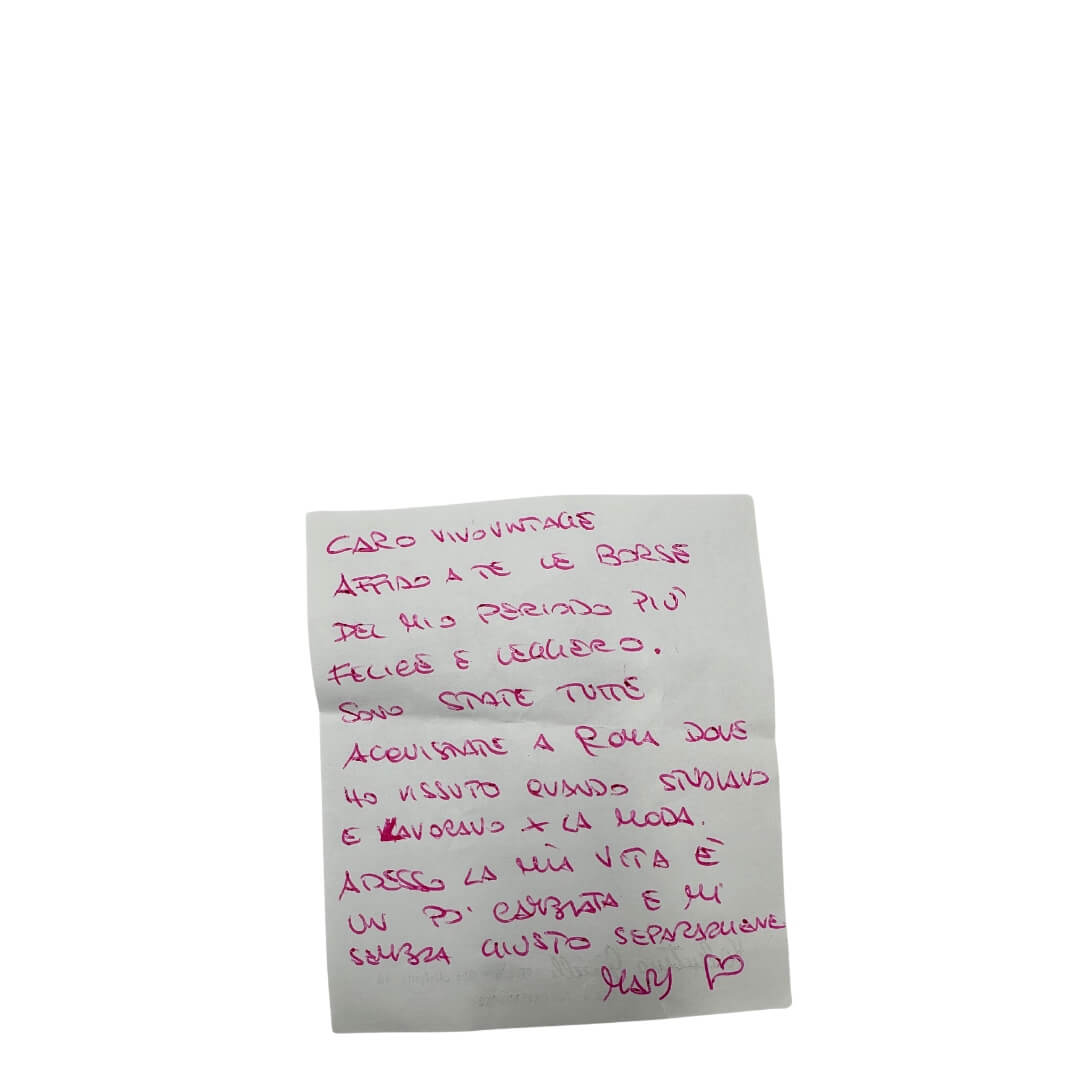 CARO VIVOVINTAGE
AFFIDO A TE LE BORSE
DEL MIO PERIODO PIÙ
FELICE E LEGGERO.
SONO STATE TUTTE
ACQUISTATE A ROMA DOVE
HO VISSUTO QUANDO STUDIAVO
E LAVORAVO X LA MODA.
ADESSO LA MIA VITA È
UN PO' CAMBIATA E MI
SEMBRA GIUSTO SEPARARMENE
MARY